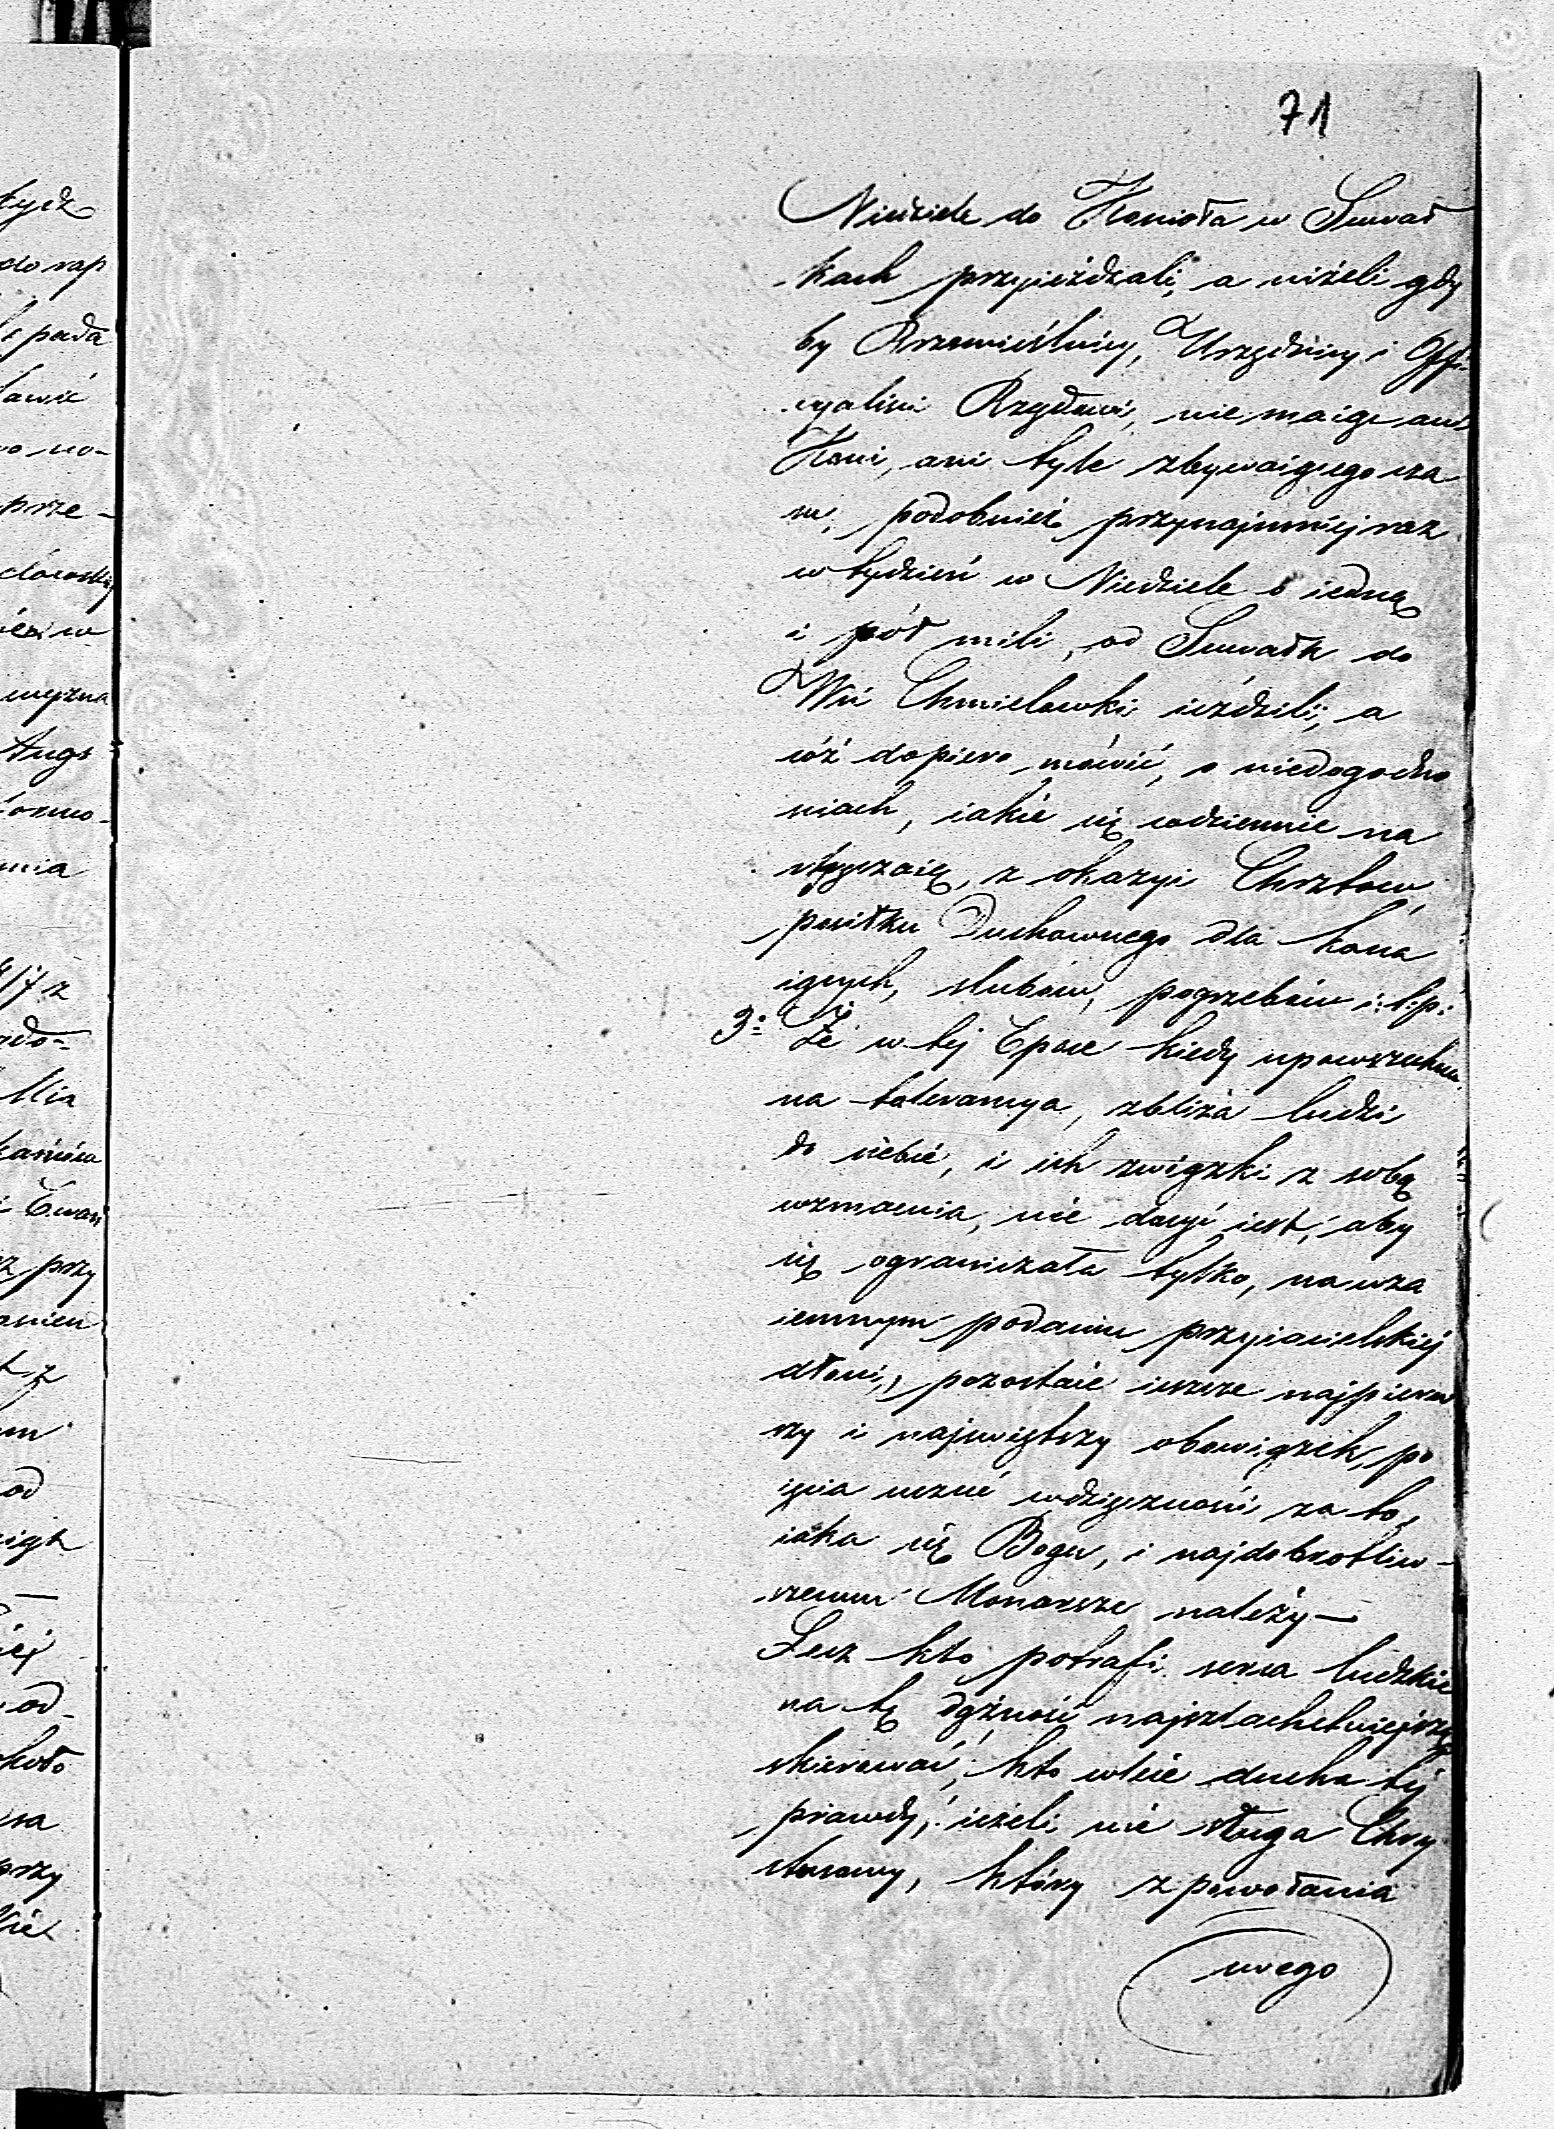 71
Niedziele do Kościoła w Suwał
kach przyieżdżali, a niżeli gdy
by Rzemieślnicy, Urzędnicy i Offi-
cyaliści Rządowi, nie maiąc ani
Koni, ani tyle zbywaiącego cza
su, podobnież przynajmniej raz
w tydzień w Niedziele o iedną
i pół mili, od Suwałk do
Wsi Chmielowki ieździli, a
cóż dopiero mówić, o niedogodno
ściach, iakie się codziennie na
stręczaią, z okazyi Chrztów,
posiłku Duchownego dla kona
iących, slubów, pogrzebów i: t: p:
3: Że w tej Epoce kiedy upowszechnio
na tolerancya, zbliża ludzi
do siebie, i ich związki z sobą
wzmacnia, nie dosyć iest, aby
się ograniczała tylko, na wza
iemnym podaniu przyiacielskiej
dłoni, pozostaie ieszcze najpierw
szy i najświętszy obowiązek, po
ięcia uczuć wdzięczności za to,
iaka się Bogu, i najdobrotliw-
szemu Monarsze należy —
Lecz kto potrafi serca ludzkie
na tę dążność najszlachetniejszą
skierować, kto wleie ducha tej
prawdy, ieżeli nie sługa Chry
stusowy, który z powołania
swego
tych
do rap
pada
tawić
prze-
Augs
mia
z
Mia
i Ewan
przy
od
od-
około
przy